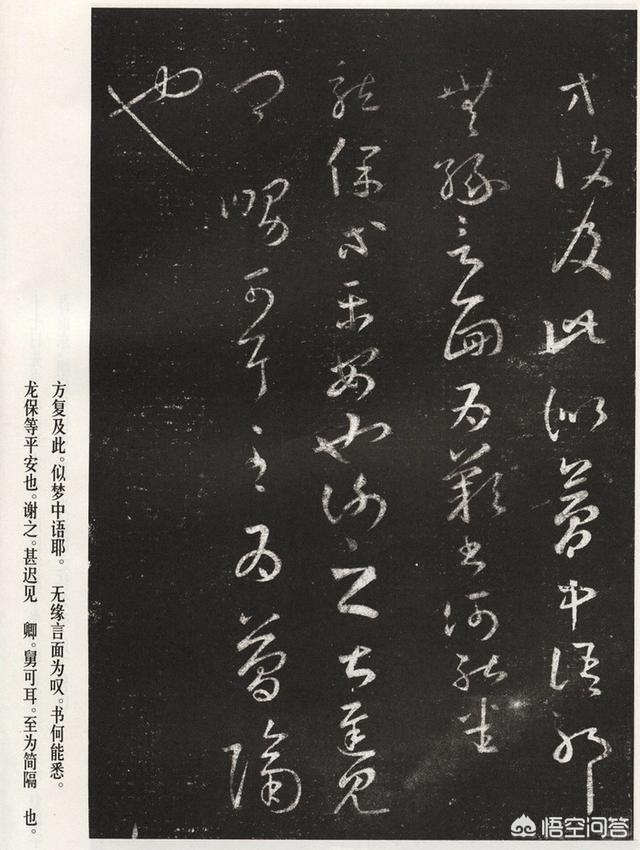 方復及此似夢中語耶
無緣言面為歎書何能悉
龍保等平安也謝之甚遲見
卿舅可耳至為簡隔
也
方复及此。似梦中语耶。 无缘言面为叹。书何能悉。
龙保等平安也。谢之。甚迟见 卿。舅可耳。至为简隔 也。
悟空问答